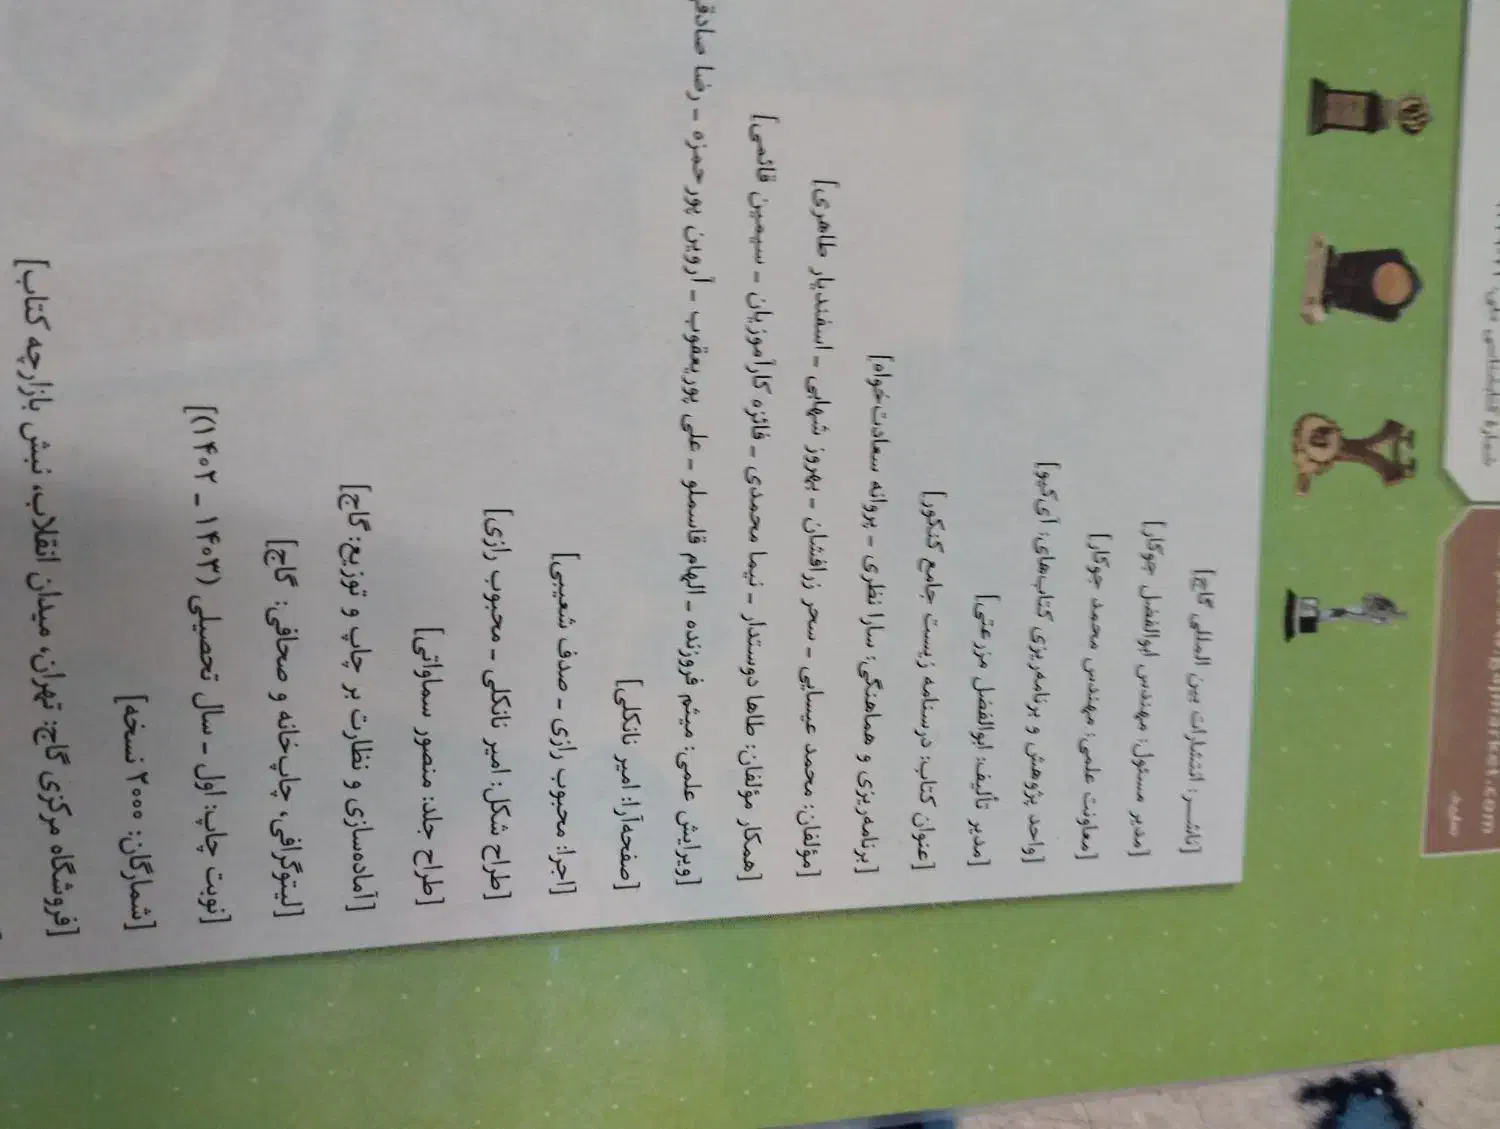 [ناشـــر: انتشارات بین المللی گاج]
[مدیر مسئول: مهندس ابوالفضل جوکار]
[معاونت علمی: مهندس محمد جوکار]
[واحد پژوهش و برنامه‌ریزی کتاب‌های: آی‌کیو]
[مدیر تألیف: ابوالفضل مزرعتی]
[عنوان کتاب: درسنامه زیست جامع کنکور]
[برنامه‌ریزی و هماهنگی: سارا نظری - پروانه سعادت‌خواه]
[مؤلفان: محمد عیسایی - سحر زرافشان - بهروز شهابی - اسفندیار طاهری]
[همکار مؤلفان: طاها دوستدار - نیما محمدی - فائزه کارآموزیان - سیمین قائمی]
[ویرایش علمی: میثم فروزنده - الهام قاسملو - علی پوریعقوب - آروین پورحمزه - رضا صادقی
[صفحه‌آرا: امیر نانکلی]
[اجرا: محبوب رازی - صدف شعیبی]
[طراح شکل: امیر نانکلی - محبوب رازی]
[طراح جلد: منصور سماواتی]
[آماده‌سازی و نظارت بر چاپ و توزیع: گاج]
[لیتوگرافی، چاپ‌خانه و صحافی: گاج]
[نوبت چاپ: اول - سال تحصیلی (۱۴۰۳ - ۱۴۰۲)]
[شمارگان: ۲۰۰۰ نسخه]
[فروشگاه مرکزی گاج: تهران، میدان انقلاب، نبش بازارچه کتاب]
شمارهٔ کتابشناسی ملی: